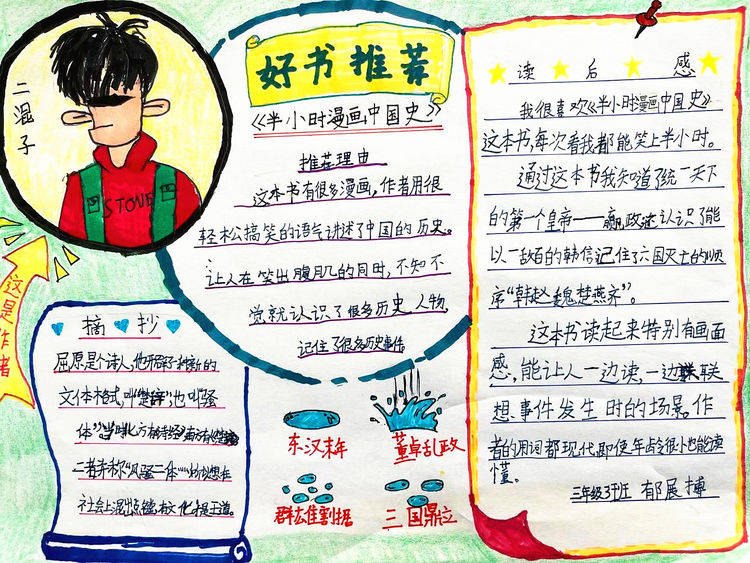 二混子
STONE
这是作者
好书推荐
《半小时漫画中国史》
推荐理由
这本书有很多漫画,作者用很
轻松搞笑的语气讲述了中国的历史。
让人在笑出腹肌的同时,不知不
觉就认识了很多历史人物,
记住了很多历史事件
摘抄
屈原是个诗人,他开
文体格式,叫"楚辞",也叫"骚
体"当时北方
二者并称"风骚二体"
社会上混出
文化才是王道。
东汉末年
董卓乱政
群雄割据
三国鼎立
读后感
我很喜欢《半小时漫画中国史》
这本书,每次看我都能笑上半小时。
通过这本书我知道了统一天下
的第一个皇帝——嬴政还认识了能
以一敌百的韩信记住了六国灭亡的顺
序"韩赵魏楚燕齐"。
这本书读起来特别有画面
感,能让人一边读,一边联
想事件发生时的场景。作
者的用词都现代即使年龄很小也能读
懂。
三年级3班 郁展搏